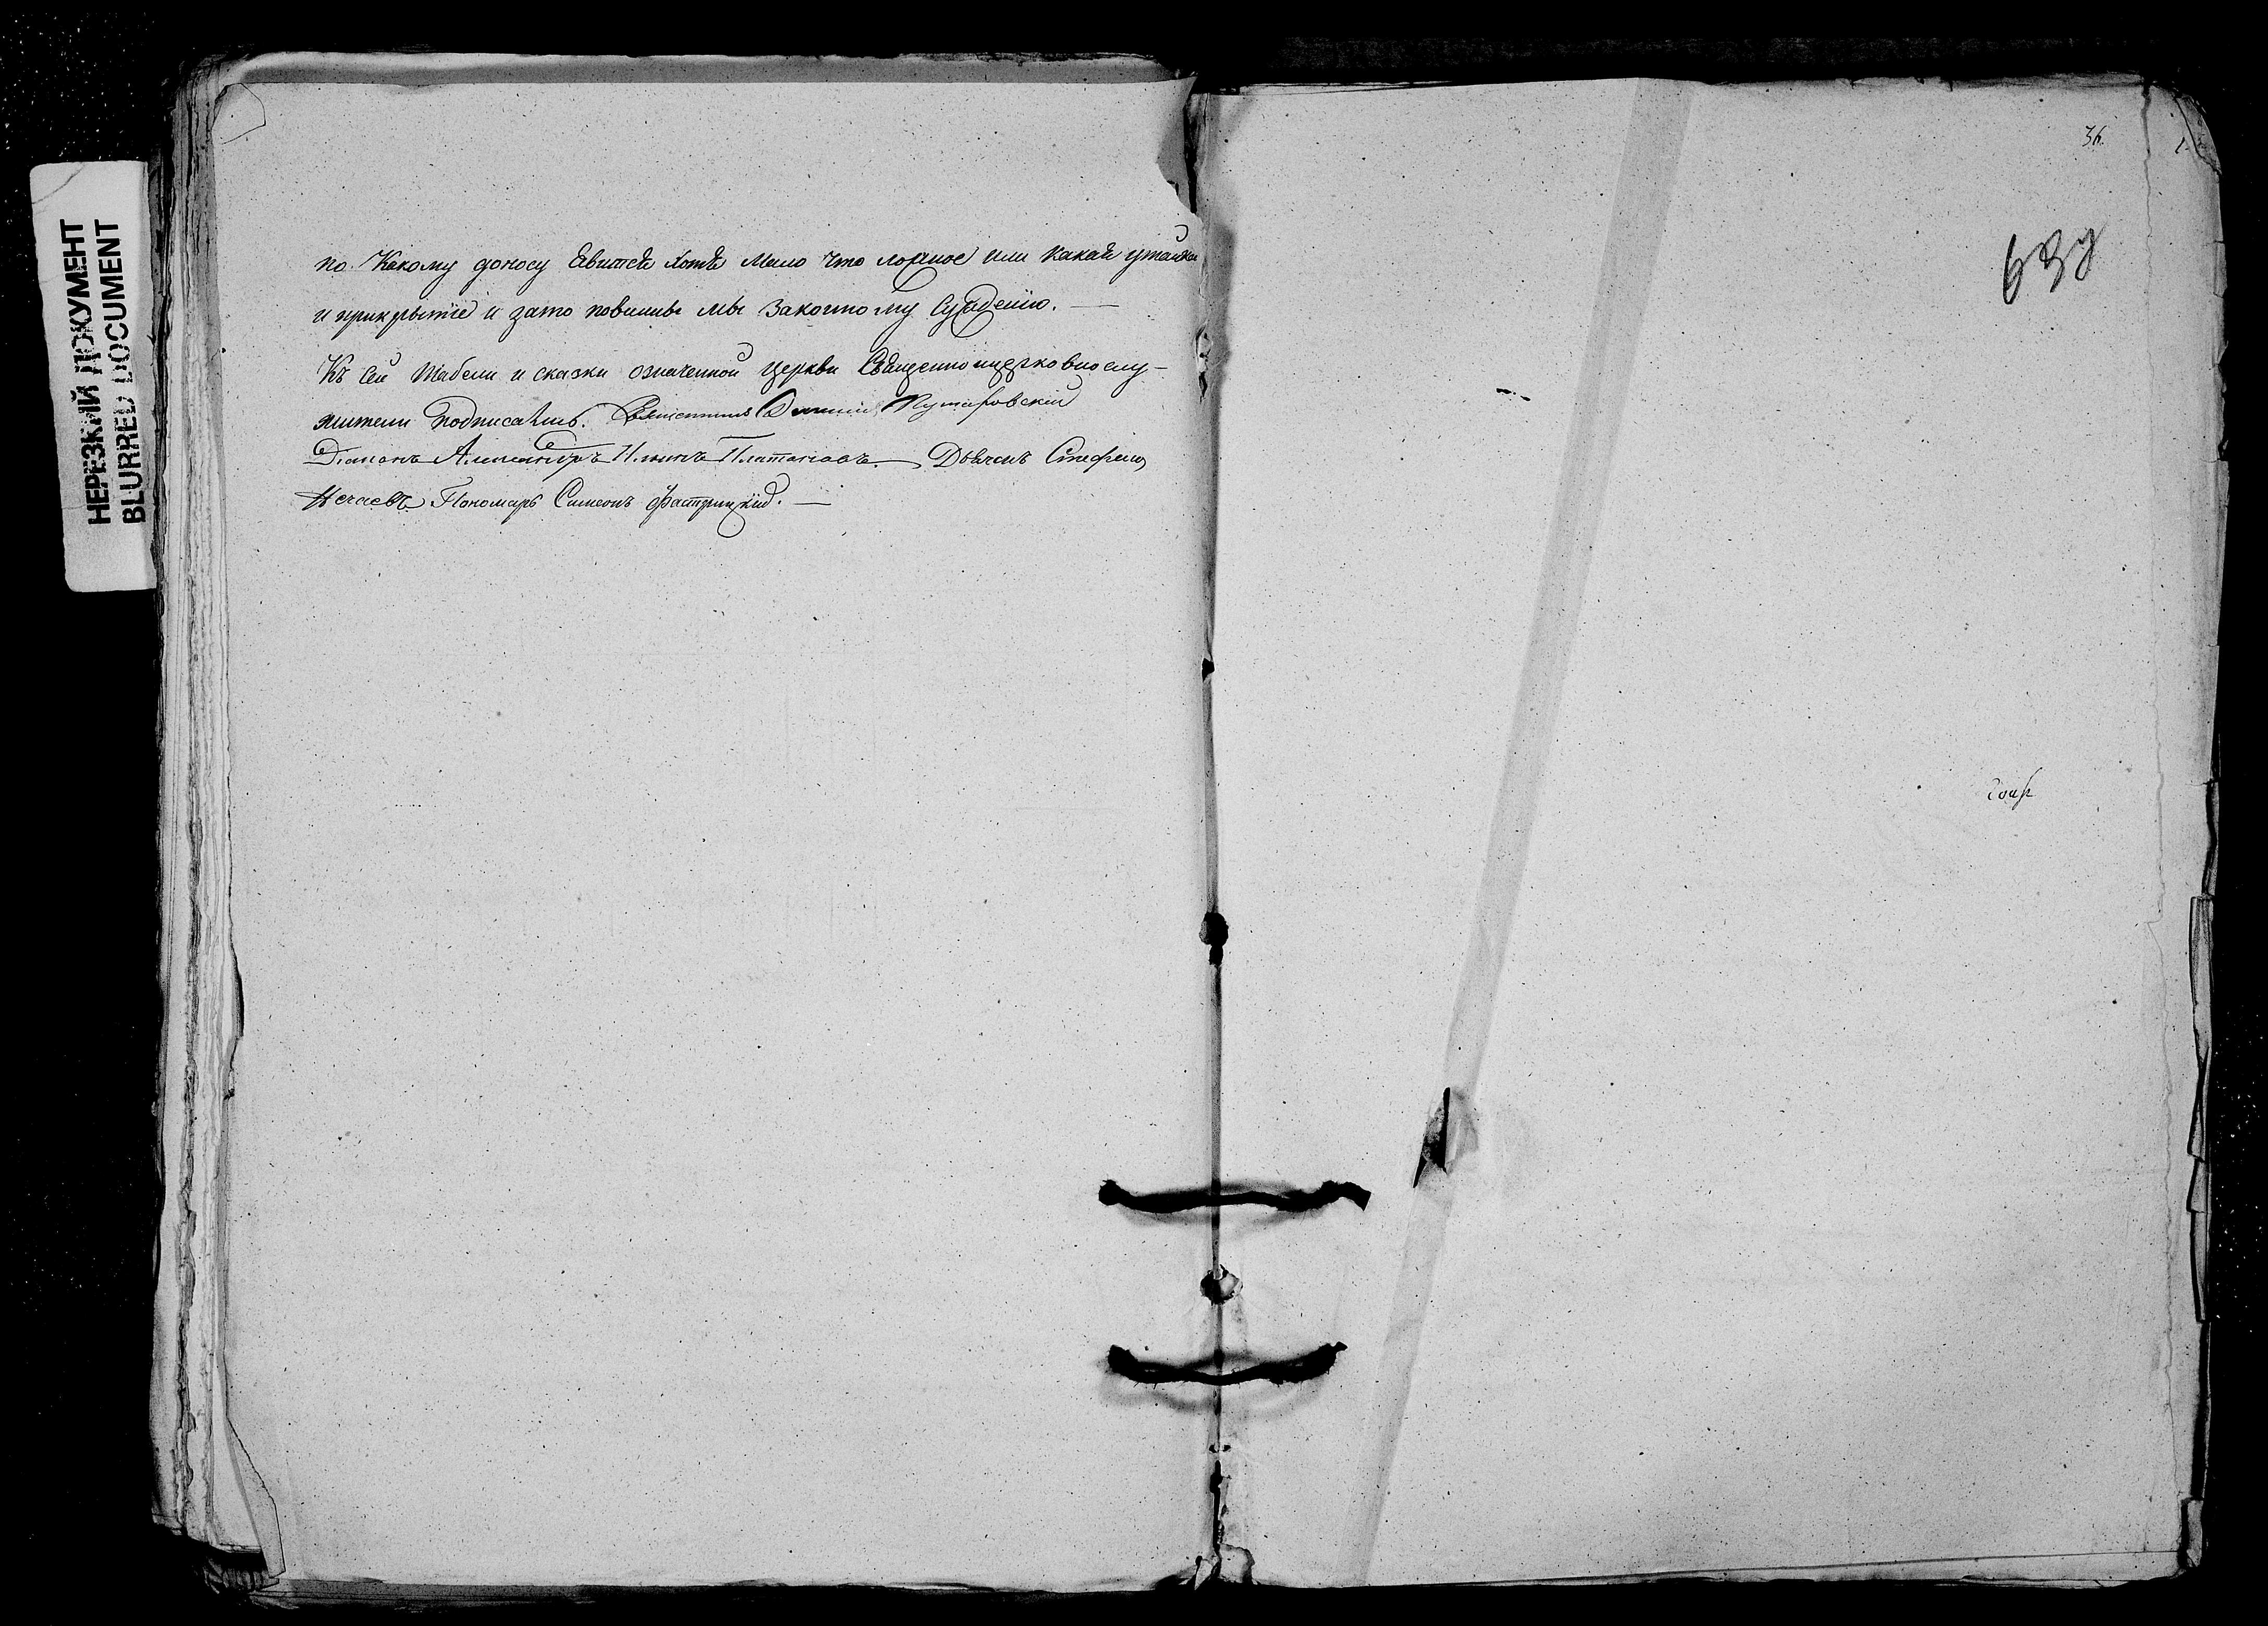 НЕРЕЗКИЙ ДОКУМЕНТ
BLURRED DOCUMENT
по какому доносу Явится хотя мало что ложное или какая утайка
и прикрытïе и зато повинны мы законному Сужденïю. —
Къ сей табели и сказки означенной церкви Священноицерковнослу-
жители подписались. Священникъ
Дïаконъ Александръ Платоновъ. Дьячекъ Стефанъ
Нечаевъ Пономарь Симеонъ
36.
639